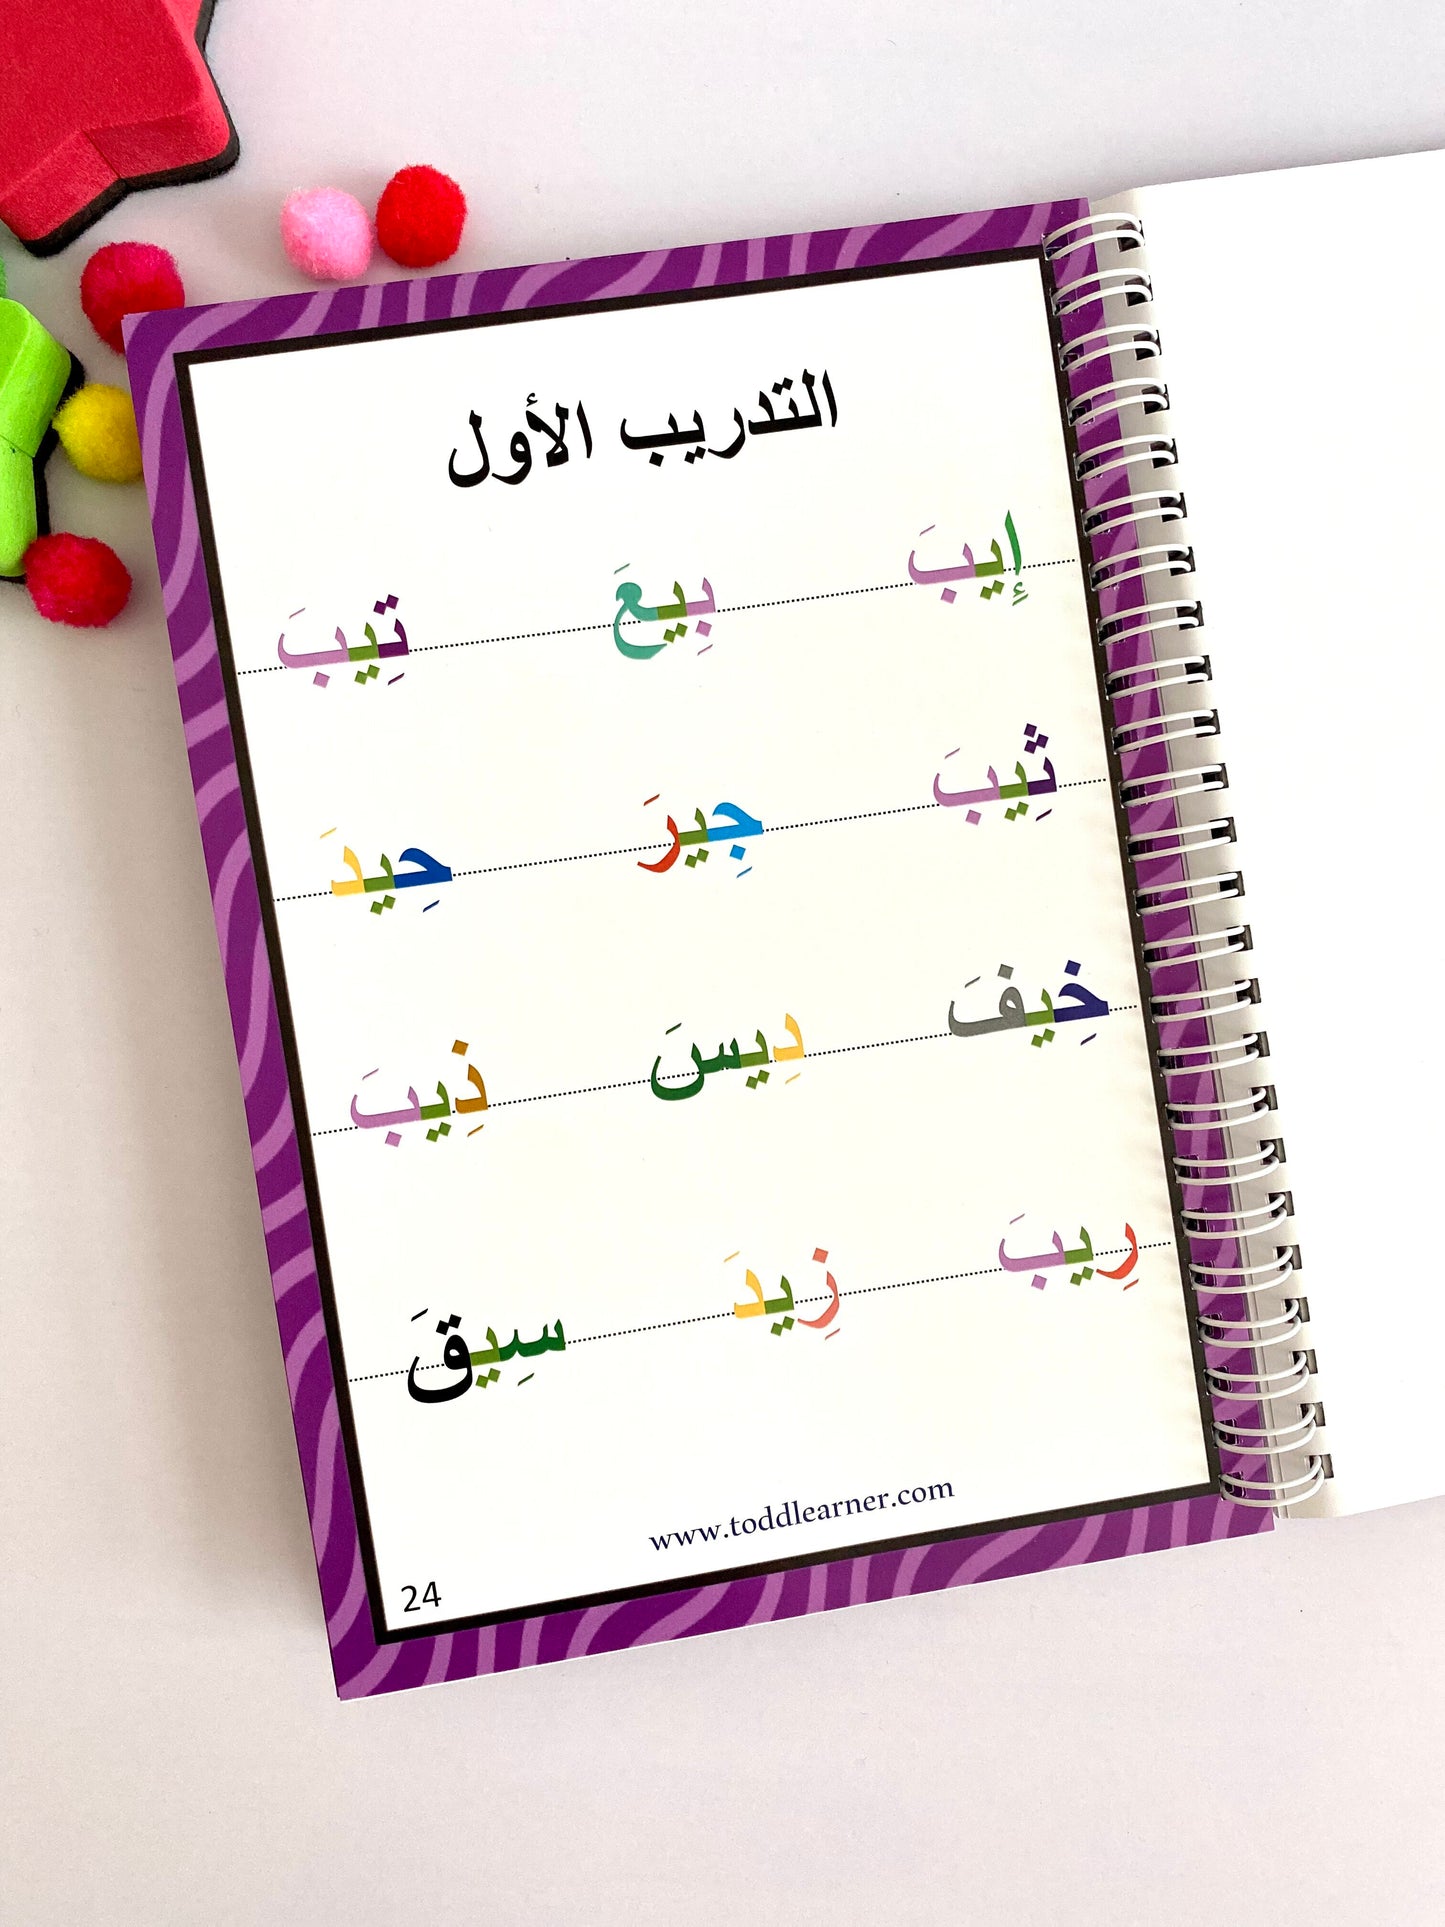 التدريب الأول
إِيبَ بِيعَ تِيبَ
ثِيبَ جِيرَ حِيدَ
خِيفَ دِيسَ ذِيبَ
رِيبَ زِيدَ سِيقَ
www.toddlearner.com
24